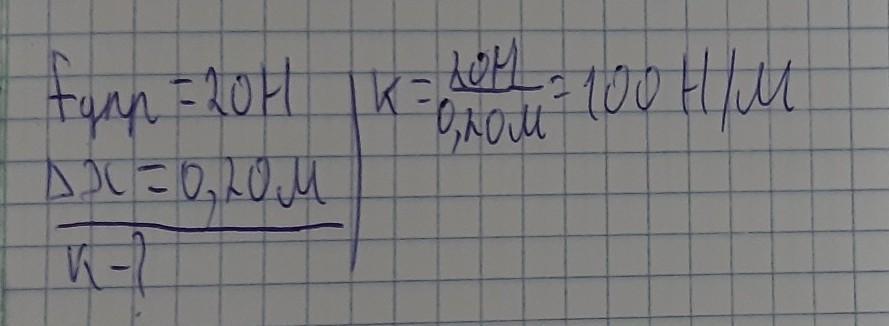 Fупр = 20Н
Δx = 0,20м
к - ?
к = 20Н / 0,20м = 100 Н/м